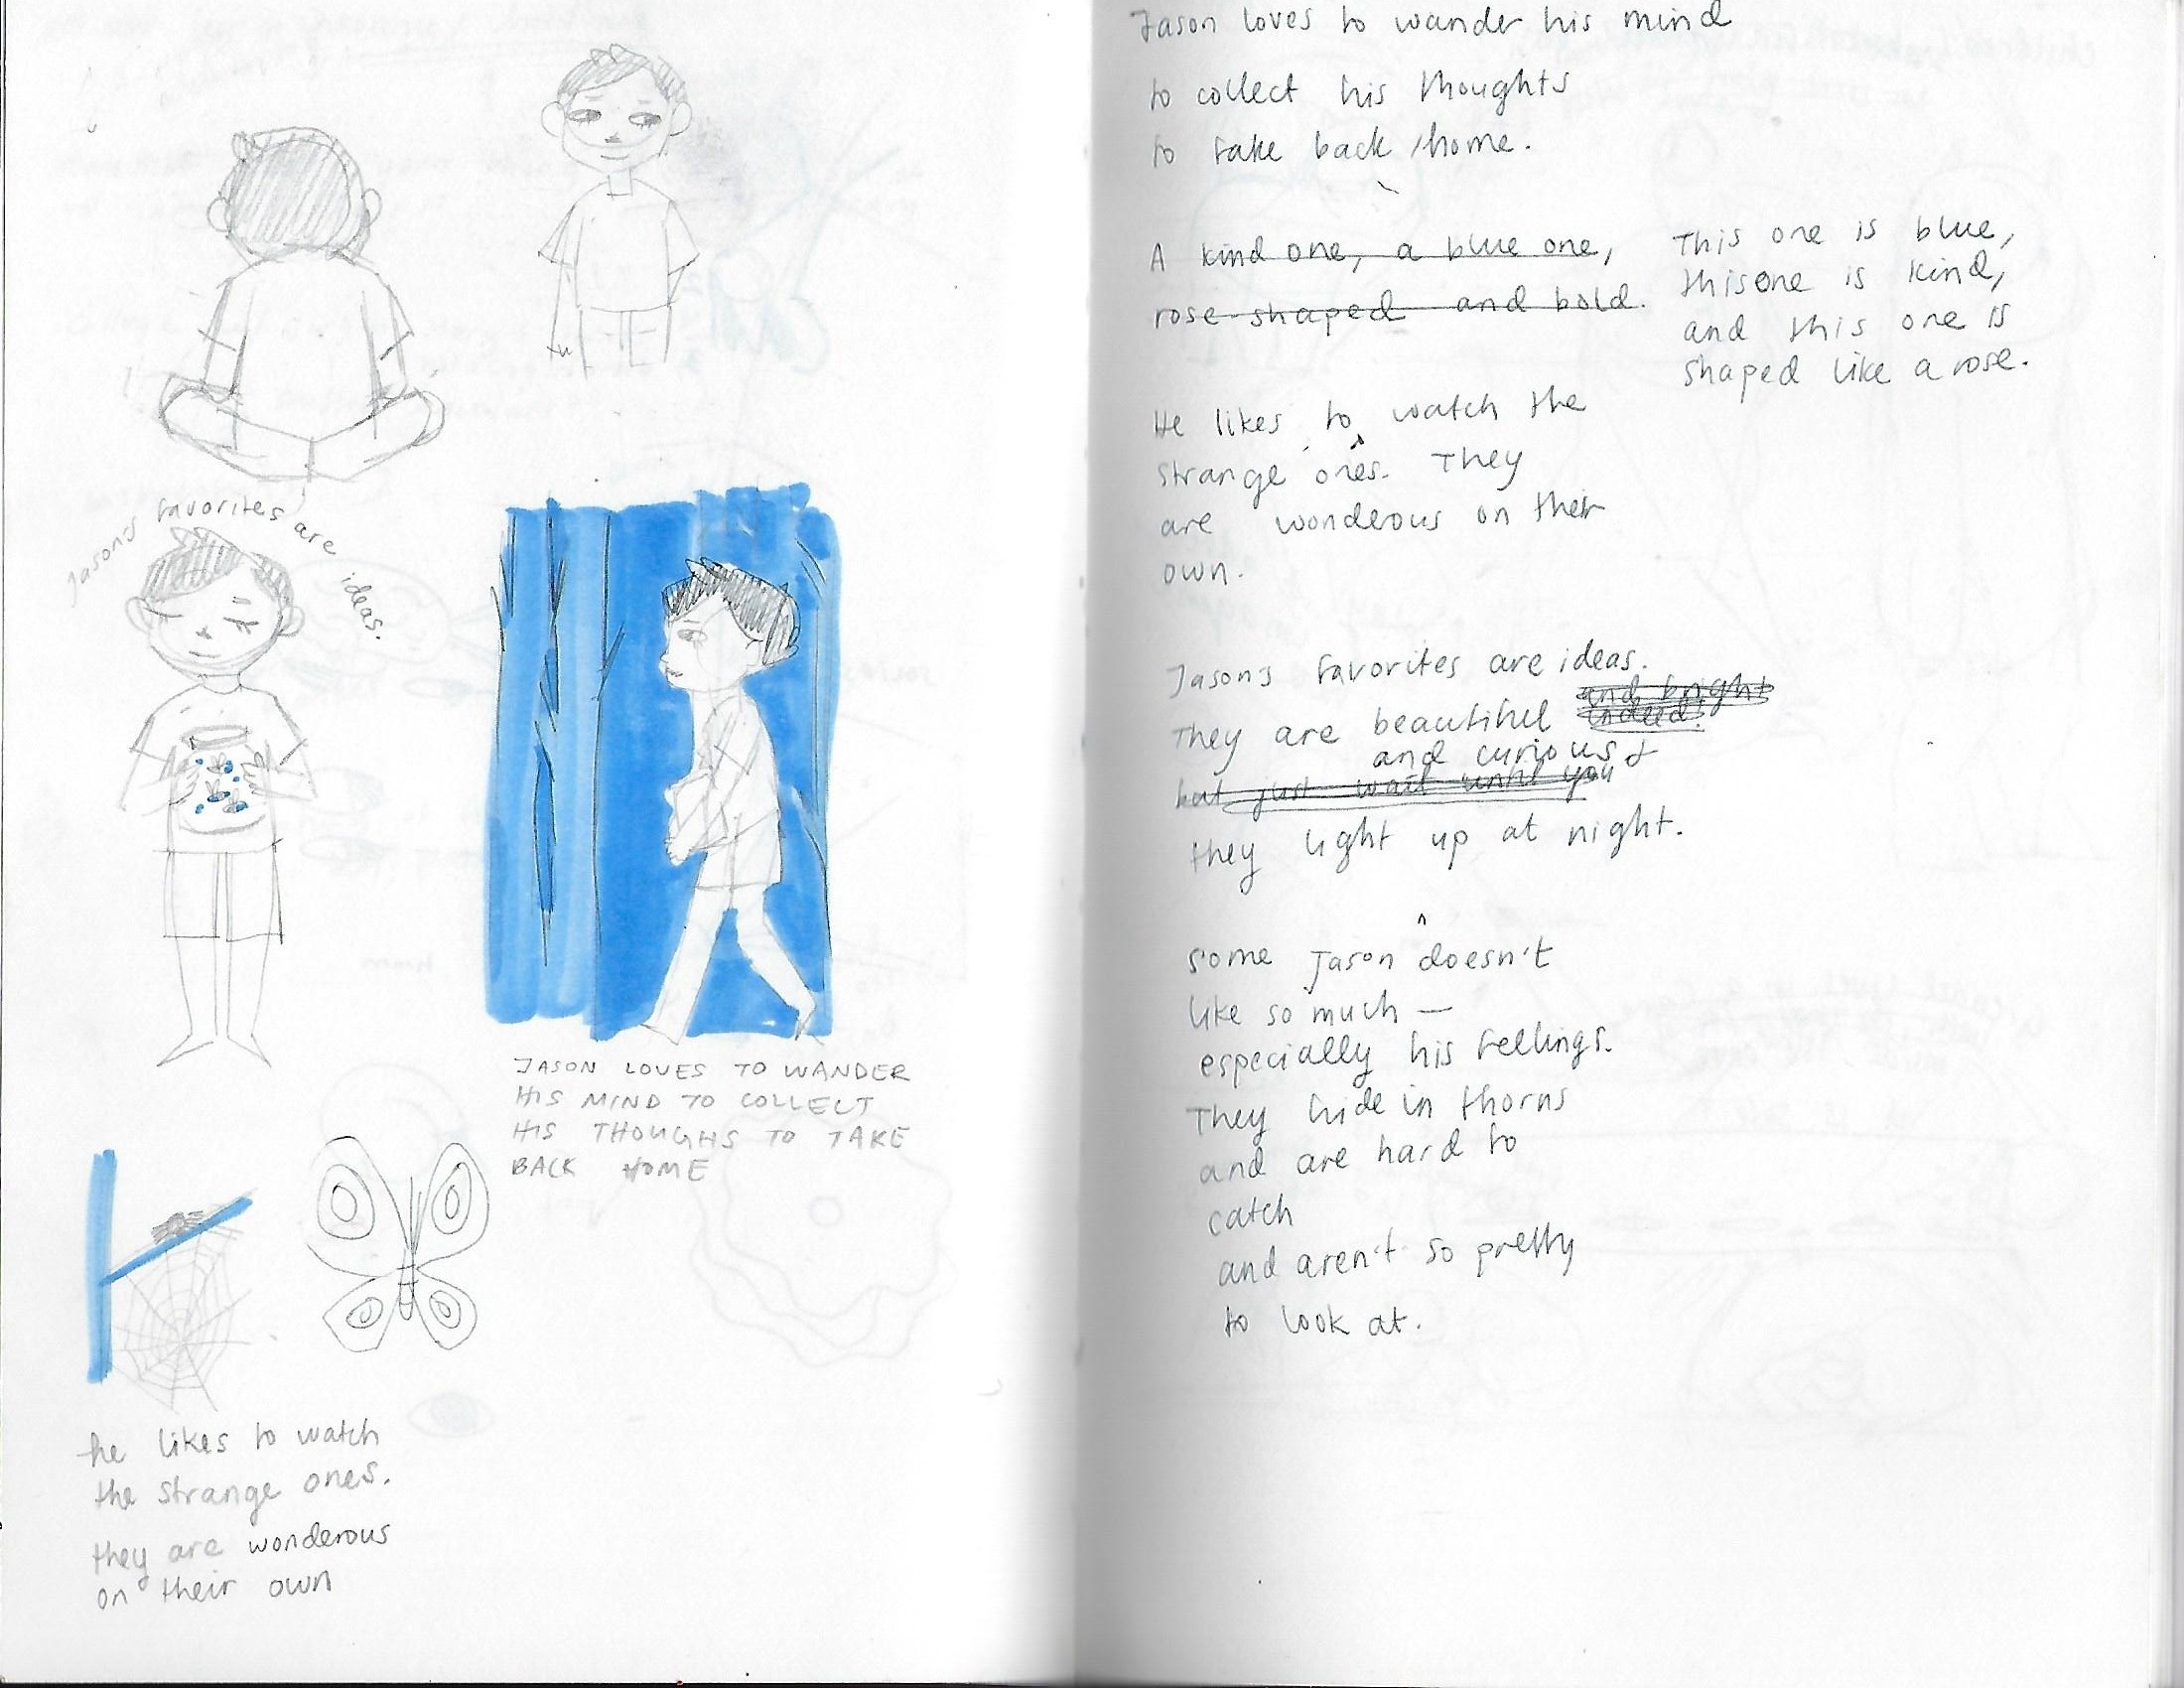 Jason's favorites are ideas.
JASON LOVES TO WANDER
HIS MIND TO COLLECT
HIS THOUGHS TO TAKE
BACK HOME
he likes to watch
the strange ones.
they are wonderous
on their own
Jason loves to wander his mind
to collect his thoughts
to take back home.
A kind one, a blue one,
rose-shaped and bold.
This one is blue,
this one is kind,
and this one is
shaped like a rose.
He likes to watch the
strange ones. They
are wonderous on their
own.
Jason's favorites are ideas.
and bright
They are beautiful indeed!
and curious &
but just wait until you
they light up at night.
some Jason doesn't
like so much —
especially his feelings.
They hide in thorns
and are hard to
catch
and aren't so pretty
to look at.